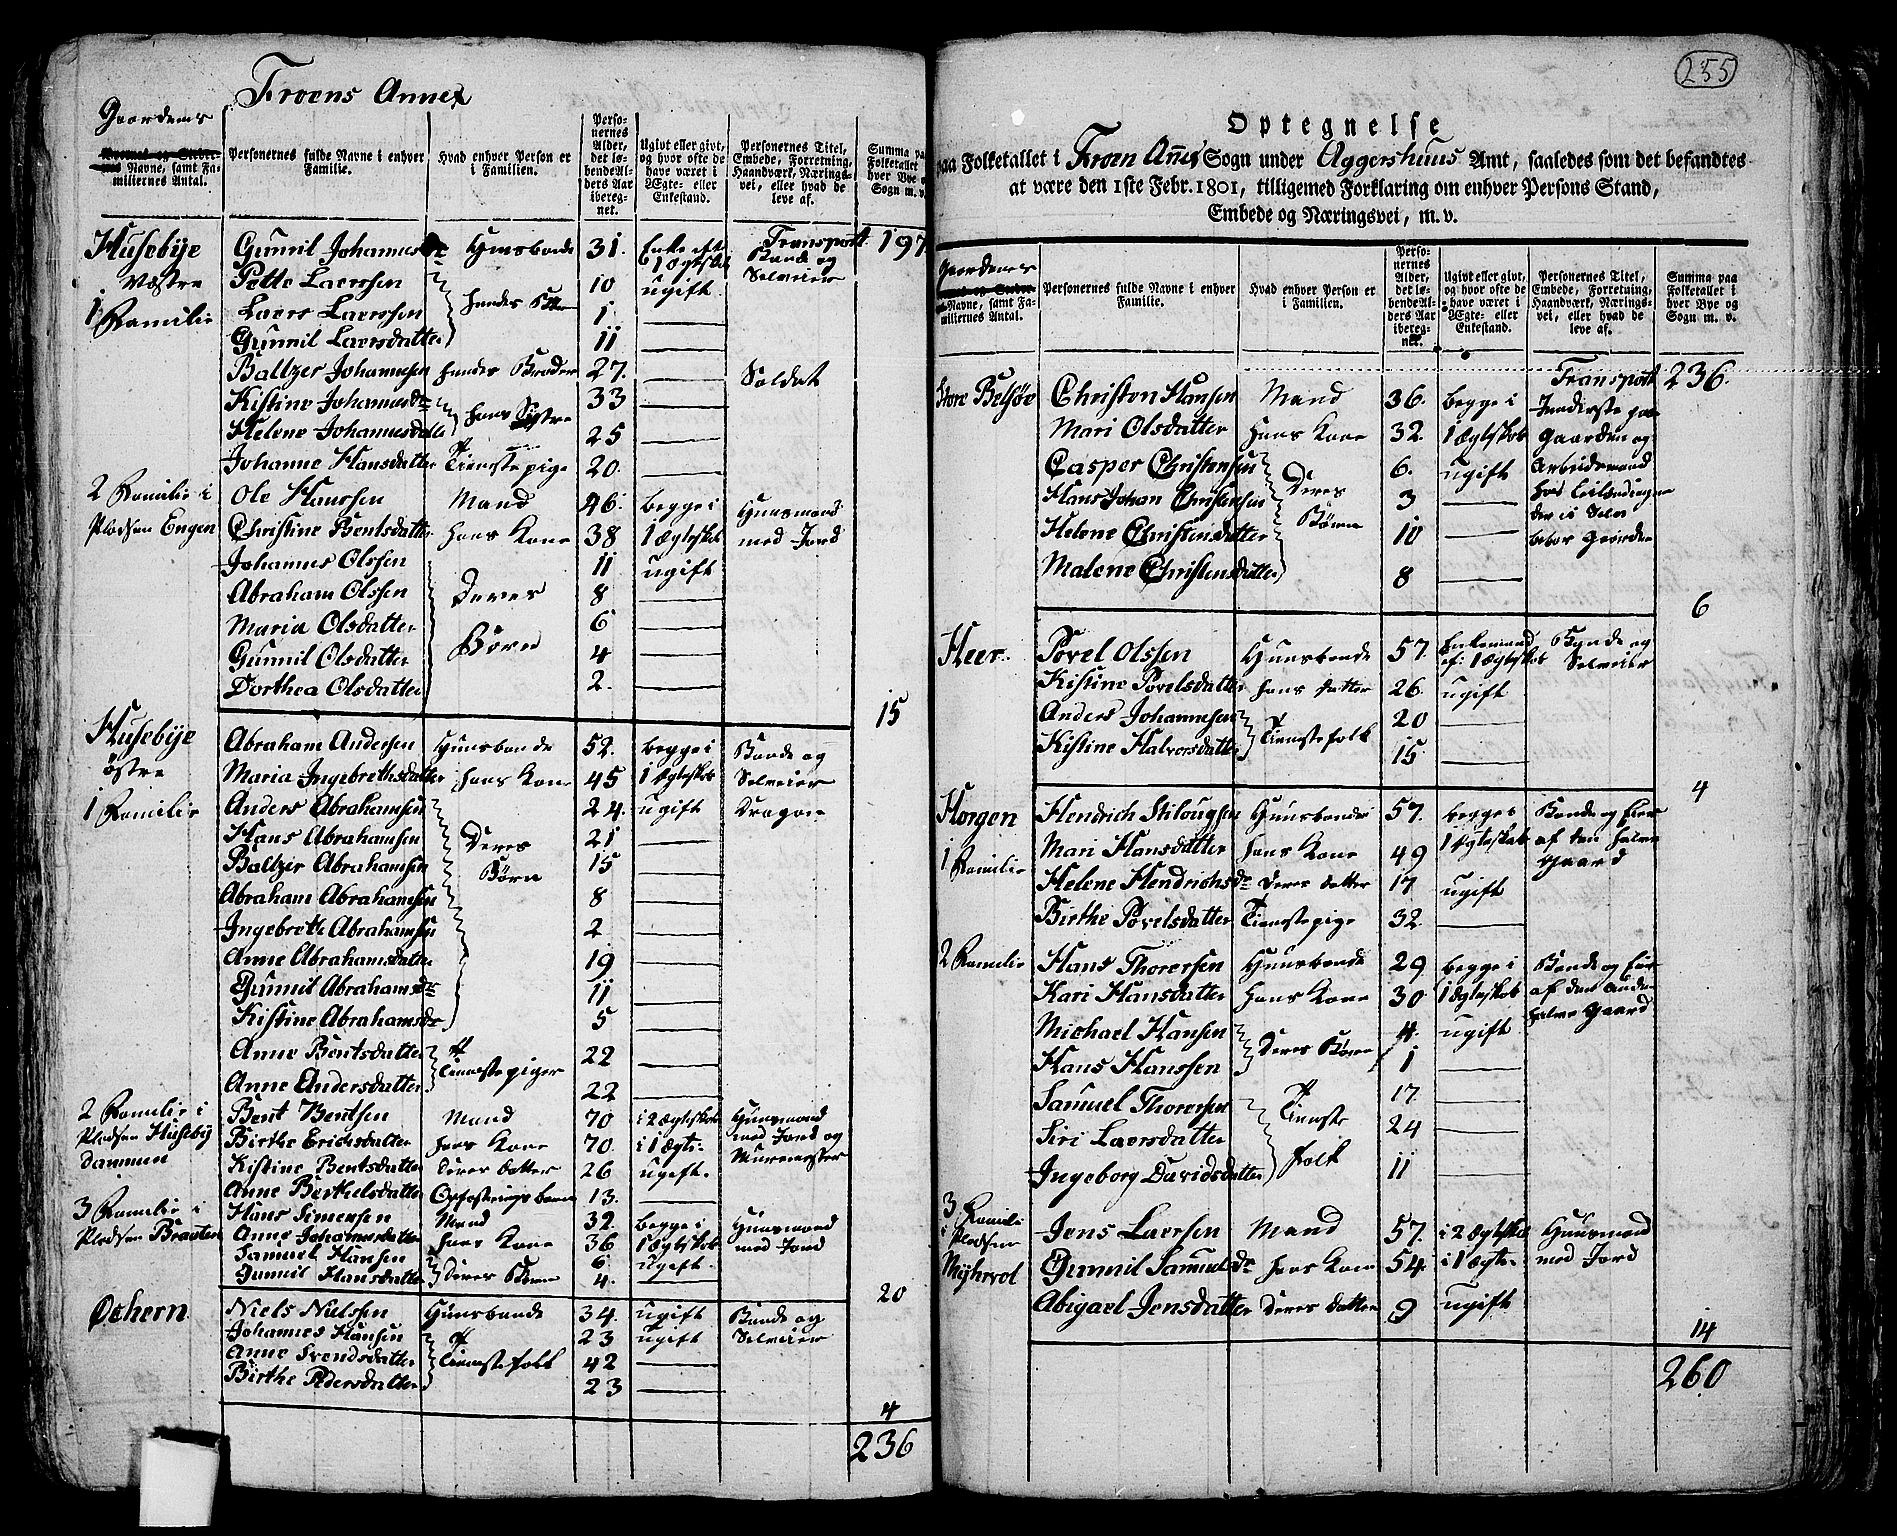 Froens Annex
Gaardenes
Navne, samt Fa-
miliernes Antal.
Personernes fulde Navne i enhver
Familie.
Hvad enhver Person er
i Familien.
Perso-
nernes
Alder,
det lø-
bende Al-
ders Aar
ibereg-
net.
Ugivt eller givt,
og hvor ofte de
have været i
Ægte- eller
Enkestand.
Personernes Titel,
Embede, Forretning,
Haandværk, Nærings-
vei, eller hvad de
leve af.
Summa paa
Folketallet i
hver Bye og
Sogn m. v.
Transport 197
Husebije Gunnil Johannesdr Huusbonde 31. Enke eft 1 Ægteskab Bonde og
Væstre Pette Laerssen 10 ugift Selveier
1 Familie Laers Laerssen hendes Børn 1
Gunnil Laersdatter 11
Baltzer Johannesen hendes Broder 27. Soldat
Kistine Johannesdr 33
Helene Johannesdatter hans Søstre 25
Johanne Hansdatter Tienstepige 20.
2 Familie i Ole Hanssen Mand 46. begge i Huusmand
Pladsen Engen Christine Bentsdatter hans Kone 38 1 Ægteskab med Jord
Johannes Olssen 11 ugift
Abraham Olssen Deres 8
Maria Olsdatter 6
Gunnil Olsdatter Børn 4
Dorthea Olsdatter 2.
15
Husebije Abraham Andersen Huusbonde 52. begge i Bonde og
østre Maria Ingebrethsdatter hans Kone 45 1 Ægteskab Selveier
1 Familie Anders Abrahamsen 24. ugift Dragon
Hans Abrahamsen Deres 21
Baltzer Abrahamsen Børn 15
Abraham Abrahamsen 8
Ingebreth Abrahamsen 2
Anne Abrahamsdatter 19
Gunnil Abrahamsdr 11
Kistine Abrahamsdr 5
Anne Bentsdatter 22
Tienstepiger
Anne Andersdatter 22
2 Familie i Bent Bentsen Mand 70 i 2 Ægteskab Huusmand
Pladsen Huseby Birthe Ericksdatter hans Kone 70. i 1 Ægt: med Jord og
dammen Kistine Bentsdatter Deres datter 26 ugift. Muremester
Anne Berthelsdatter Opfostrings barn 13.
3 Familie i Hans Simensen Mand 32. begge i Huusmand
Pladsen Braaten Anne Johannesdatter hans Kone 36 1 Ægteskab med Jord
Samuel Hansen 6. ugift.
Gunnil Hansdatter Deres Børn 4.
20
Ochern Niels Nielsen Huusbonde 34. ugift Bonde og
Johannes Hansen 23 ugift Selveier
Anne Svendsdatter Tienstefolk 42
Birthe Pedersdatter 23
4
236
255
Optegnelse
paa Folketallet i Froen Annex Sogn under Aggershuus Amt, saaledes som det befandtes
at være den 1ste Febr. 1801, tilligemed Forklaring om enhver Persons Stand,
Embede og Næringsvei, m. v.
Gaardenes
Navne, samt Fa-
miliernes Antal.
Personernes fulde Navne i enhver
Familie.
Hvad enhver Person er
i Familien.
Perso-
nernes
Alder,
det lø-
bende Al-
ders Aar
ibereg-
net.
Ugivt eller givt,
og hvor ofte de
have været i
Ægte- eller
Enkestand.
Personernes Titel,
Embede, Forretning,
Haandværk, Nærings-
vei, eller hvad de
leve af.
Summa paa
Folketallet i
hver Bye og
Sogn m. v.
Transport 236.
Store Belsøe Christon Hansen Mand 36. begge i Inderste paa
Mari Olsdatter hans Kone 32. 1 Ægteskab Gaarden og
Casper Christensen 6. ugift Arbeidsmand
Hans Johan Christensen Deres 3 hos Leilændingen
Helene Christensdatter Børn 10 der ei selv
Malene Christensdatter 8 beboer Gaarden
6
Heer. Povel Olssen Huusbonde 57. Enkemand af: 1 Ægteskab Bonde og
Kistine Povelsdatter hans datter 26. ugift Selveier
Anders Johannesen 20
Tienstefolk
Kistine Halvorsdatter 15
4
Horgen Hendrich Stilougsen Huusbonde 57. begge i Bonde og Eier
1 Familie Mari Hansdatter hans Kone 49 1 Ægteskab af den halve
Helene Hendrichsdr Deres datter 17 ugift Gaard
Birthe Povelsdatter Tienstepige 32.
2 Familie Hans Thorersen Huusbonde 29 begge i Bonde og Eier
Kari Hansdatter hans Kone 30 1 Ægteskab af den anden
Michael Hansen 4. ugift halve Gaard
Hans Hanssen Deres Børn 1
Samuel Thorersen 17.
Siri Laersdatter Tienste 24
Ingeborg Davidsdatter folk 11
3 Famili
i Pladsen Jens Laersen Mand 57. i 2 Ægteskab Huusmand
Myhrvol Gunnil Samuelsdr hans Kone 54. i 1 Ægt: med Jord
Abigael Jensdatter Deres datter 9 ugift
14
260